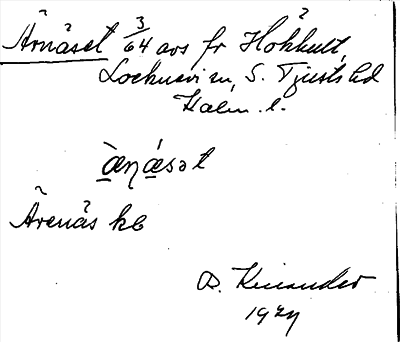 Ärnäset 3/64 avs fr Hökhult,
Locknevi sn, S. Tjusts hd
Kalm. l.
àŋásət
Ärenäs kb
O. Kinander
1927